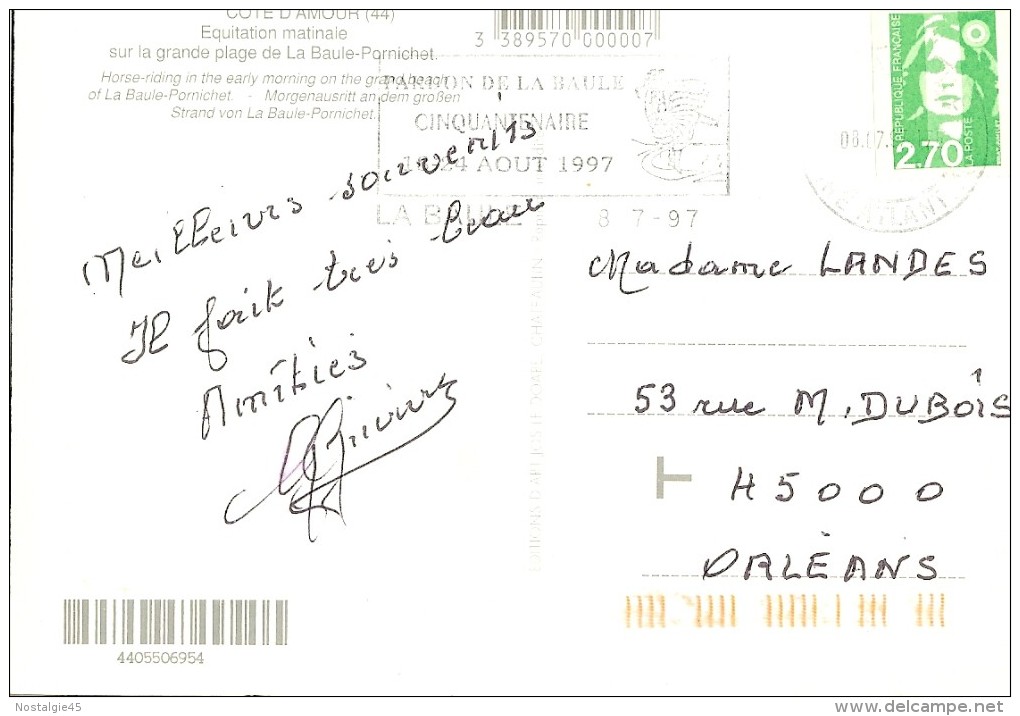 COTE D'AMOUR (44)
Equitation matinale
sur la grande plage de La Baule-Pornichet.
Horse-riding in the early morning on the grand beach
of La Baule-Pornichet. - Morgenausritt an dem großen
Strand von La Baule-Pornichet.
3 389570 000007
DE LA BAULE
CINQUANTENAIRE
24 AOUT 1997
LA BAULE 8 7-97
RÉPUBLIQUE FRANÇAISE
2,70
LA POSTE
Meilleurs souvenirs
Il fait très beau
Amitiés
Madame LANDES
53 rue M. DUBOIS
45000
ORLÉANS
T
EDITIONS D'ART JOS LE DOARE, CHATEAULIN
4405506954
Nostalgie45